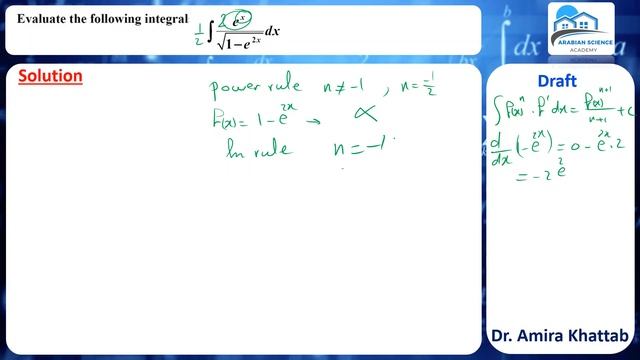 Evaluate the following integral 1/2 ∫ 2 e^x / √(1 − e^{2x}) dx
ARABIAN SCIENCE
ACADEMY
Solution
power rule n ≠ -1 , n = -1/2
f(x) = 1 - e^{2x} → ∝
ln rule n = -1
Draft
∫ f(x)^n . f' dx = f(x)^{n+1} / n+1 + c
d/dx (1 - e^{2x}) = 0 - e^{2x} . 2
= -2 e^2
Dr. Amira Khattab